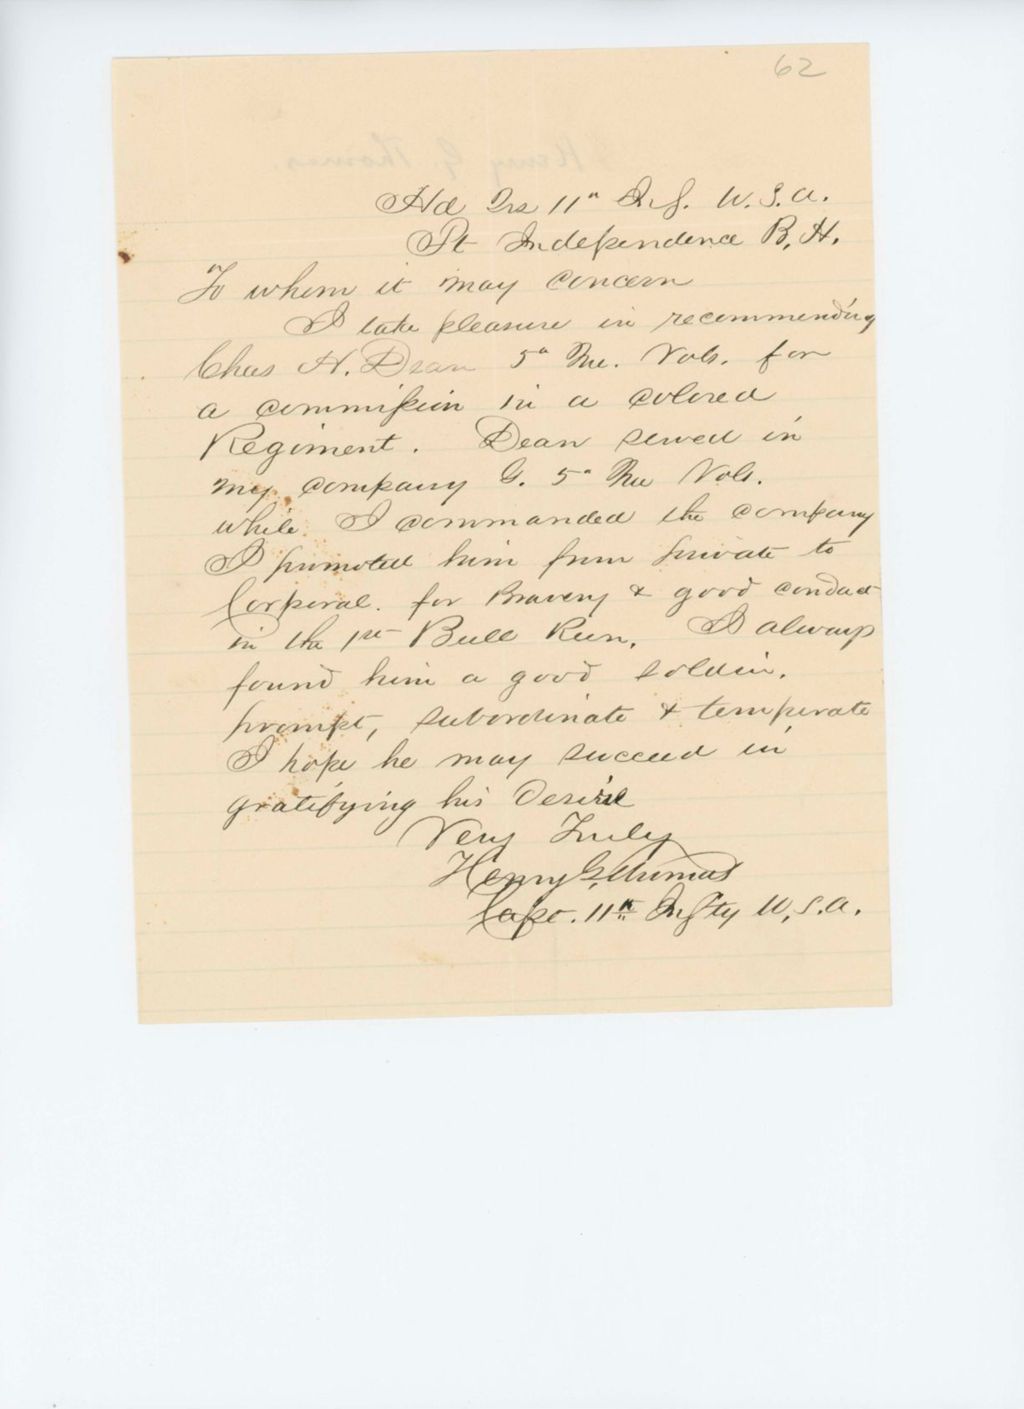 62
Hd Qrs 11" Inf. U.S.A.
Ft Independence B. H.
To whom it may concern
I take pleasure in recommending
Chas H. Dean 5" Me. Vols. for
a commission in a colored
Regiment. Dean served in
my company G. 5" Me Vols.
while I commanded the company
I promoted him from private to
Corporal. for Bravery & good conduct
in the 1st Bull Run. I always
found him a good soldier.
prompt, subordinate & temperate
I hope he may succeed in
gratifying his desire
Very Truly
Henry G. Thomas
Capt. 11th Infty U.S.A.